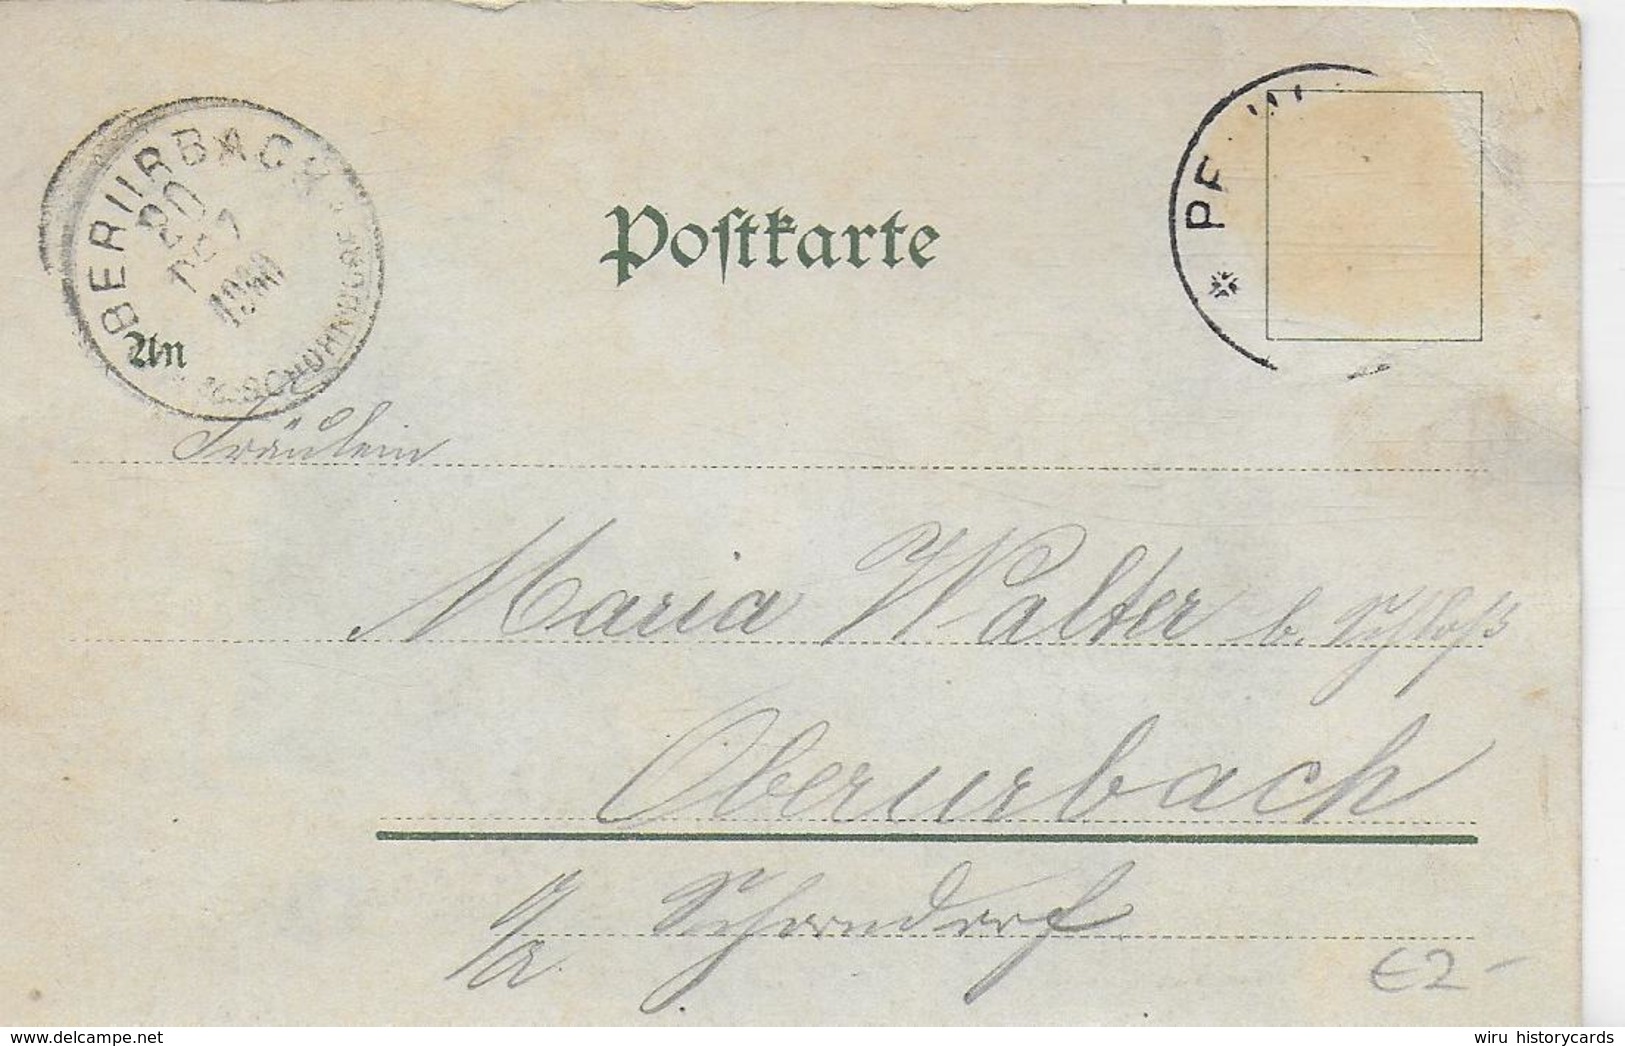 BERURBACH
20 DEZ
1900
SCHORNDORF
Postkarte
PF
An
Fräulein
Maria Walter b. Schloß
Oberurbach
b/a Schorndorf
€2-
wiru historycards
www.delcampe.net